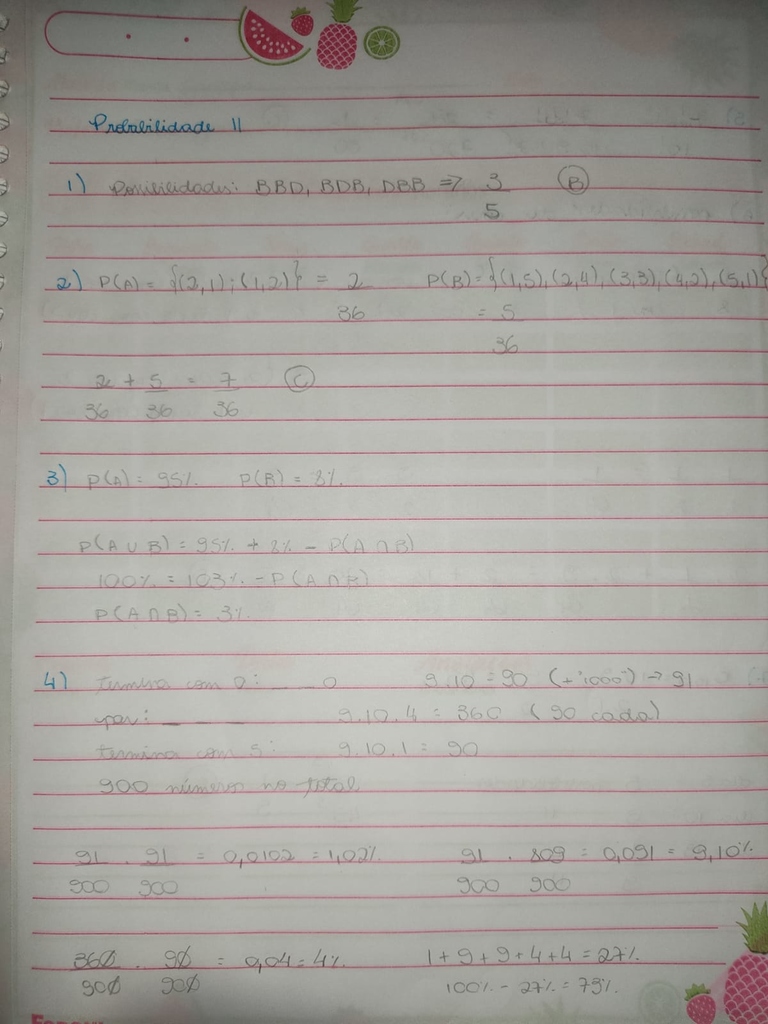 Probabilidade II
1) Possibilidades: BBD, BDB, DBB => 3/5 (B)
2) P(A) = {(2,1);(1,2)} = 2/36 P(B) = {(1,5),(2,4),(3,3),(4,2),(5,1)}
= 5/36
2/36 + 5/36 = 7/36 (C)
3) P(A) = 95% P(B) = 8%
P(A ∪ B) = 95% + 8% - P(A ∩ B)
100% = 103% - P(A ∩ B)
P(A ∩ B) = 3%
4) termina com 0: _ _ 0 9.10 = 90 (+ "1000") → 91
par: _ _ _ 9.10.4 = 360 (90 cada)
termina com 5: 9.10.1 = 90
900 números no total
91/900 . 91/900 = 0,0102 = 1,02% 91/900 . 809/900 = 0,091 = 9,10%
360/900 . 90/900 = 0,04 = 4% 1+9+9+4+4 = 27%
100% - 27% = 73%